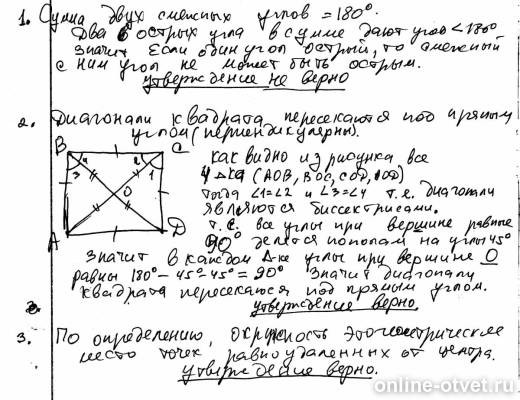 1. Сумма двух смежных углов = 180°.
Два острых угла в сумме дают угол < 180°
Значит если один угол острый, то смежный
с ним угол не может быть острым.
утверждение не верно
2. Диагонали квадрата пересекаются под прямым
углом (перпендикулярны).
B C
4 2
3 1
O
A D
как видно из рисунка все
4 Δка (AOB, BOC, COD,
тогда ∠1=∠2 и ∠3=∠4 т.е. диагонали
являются биссектрисами.
т.е. все углы при вершине равные
90° делятся пополам на углы 45°
Значит в каждом Δ-ке углы при вершине O
равны 180° - 45° - 45° = 90° Значит диагонали
квадрата пересекаются под прямым углом.
утверждение верно.
3. По определению, окружность это геометрическое
место точек равноудаленных от центра.
утверждение верно.
online-otvet.ru